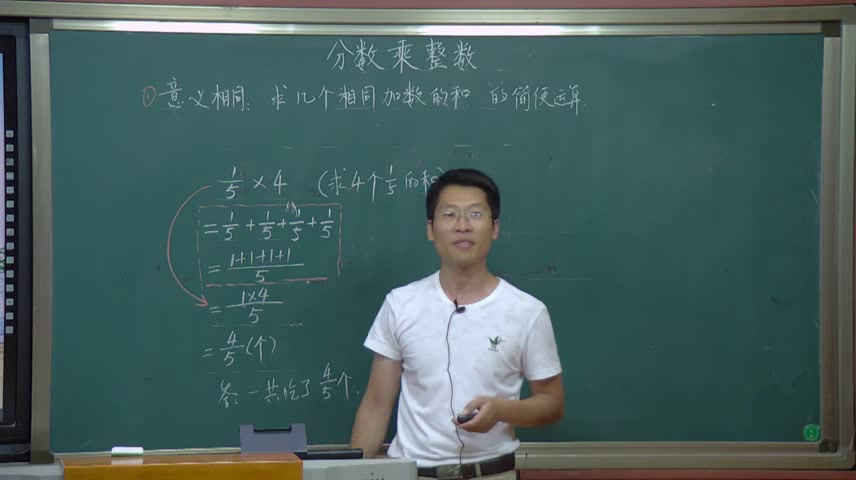 分数乘整数
① 意义相同：求几个相同加数的和 的简便运算
1/5 × 4 (求4个1/5的和)
= 1/5 + 1/5 + 1/5 + 1/5
= 1+1+1+1/5
= 1×4/5
= 4/5 (个)
答：一共吃了4/5个.